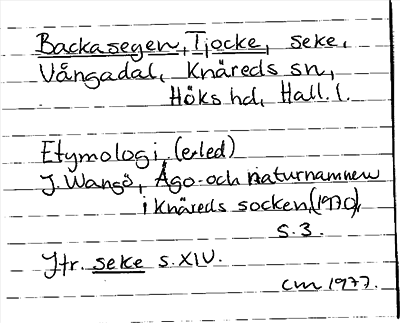 Backasegen, Tjocke, seke,
Vångadal, Knäreds sn,
Höks hd, Hall. l.
Etymologi, (e-led)
J. Wangö, Ägo- och naturnamnen
i Knäreds socken, (1970),
s. 3.
Jfr. seke s. XIV.
CM 1977.